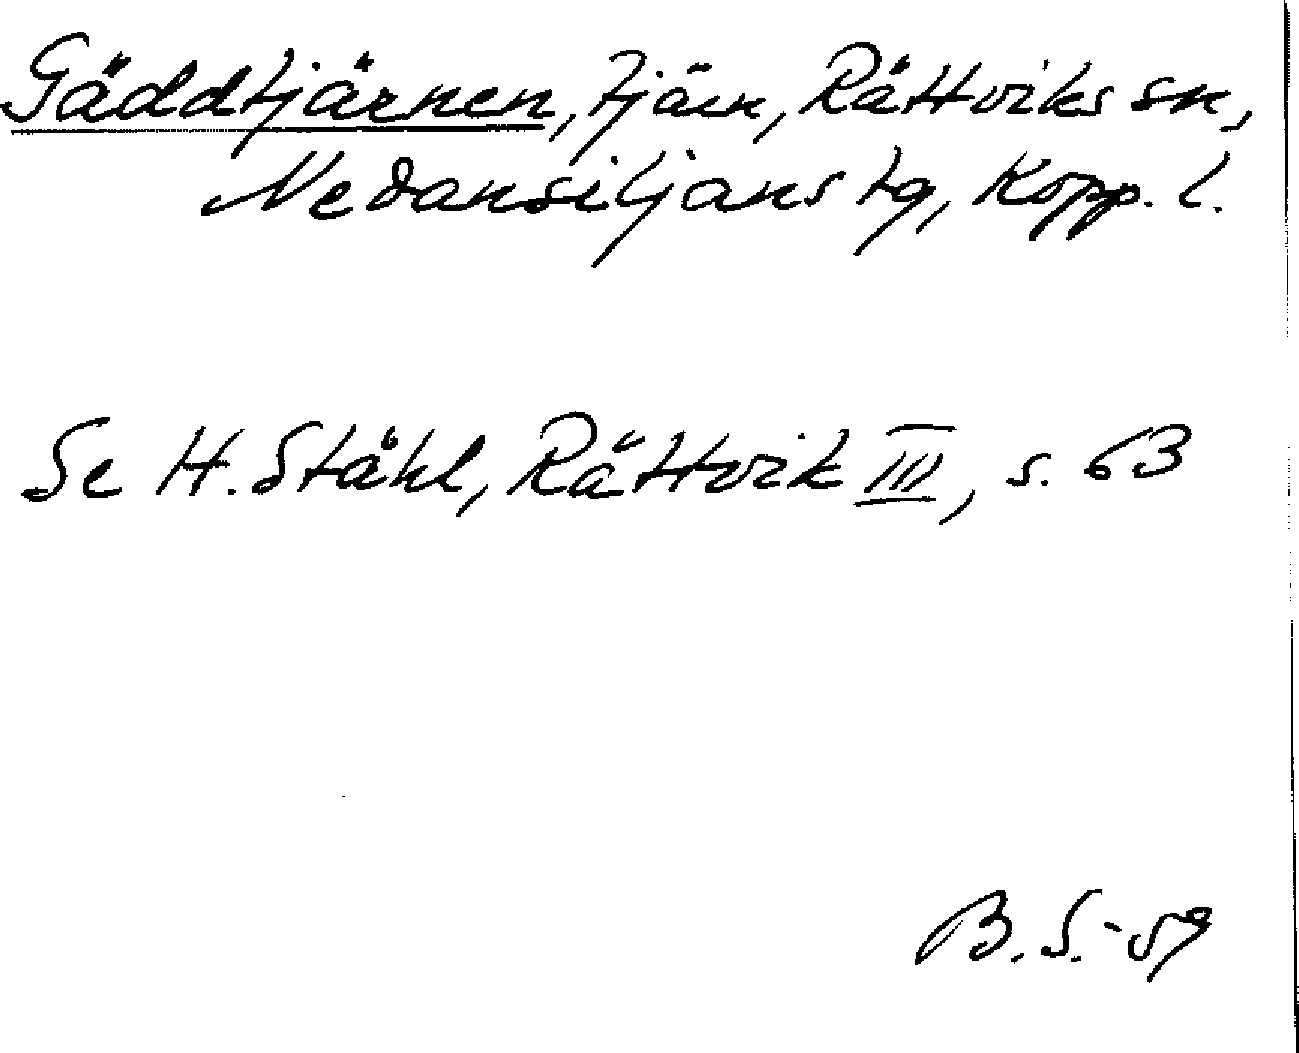 Gäddtjärnen, tjärn, Rättviks sn,
Nedansiljans tg, Kopp. l.
Se H. Ståhl, Rättvik III, s. 63
B. S. -59